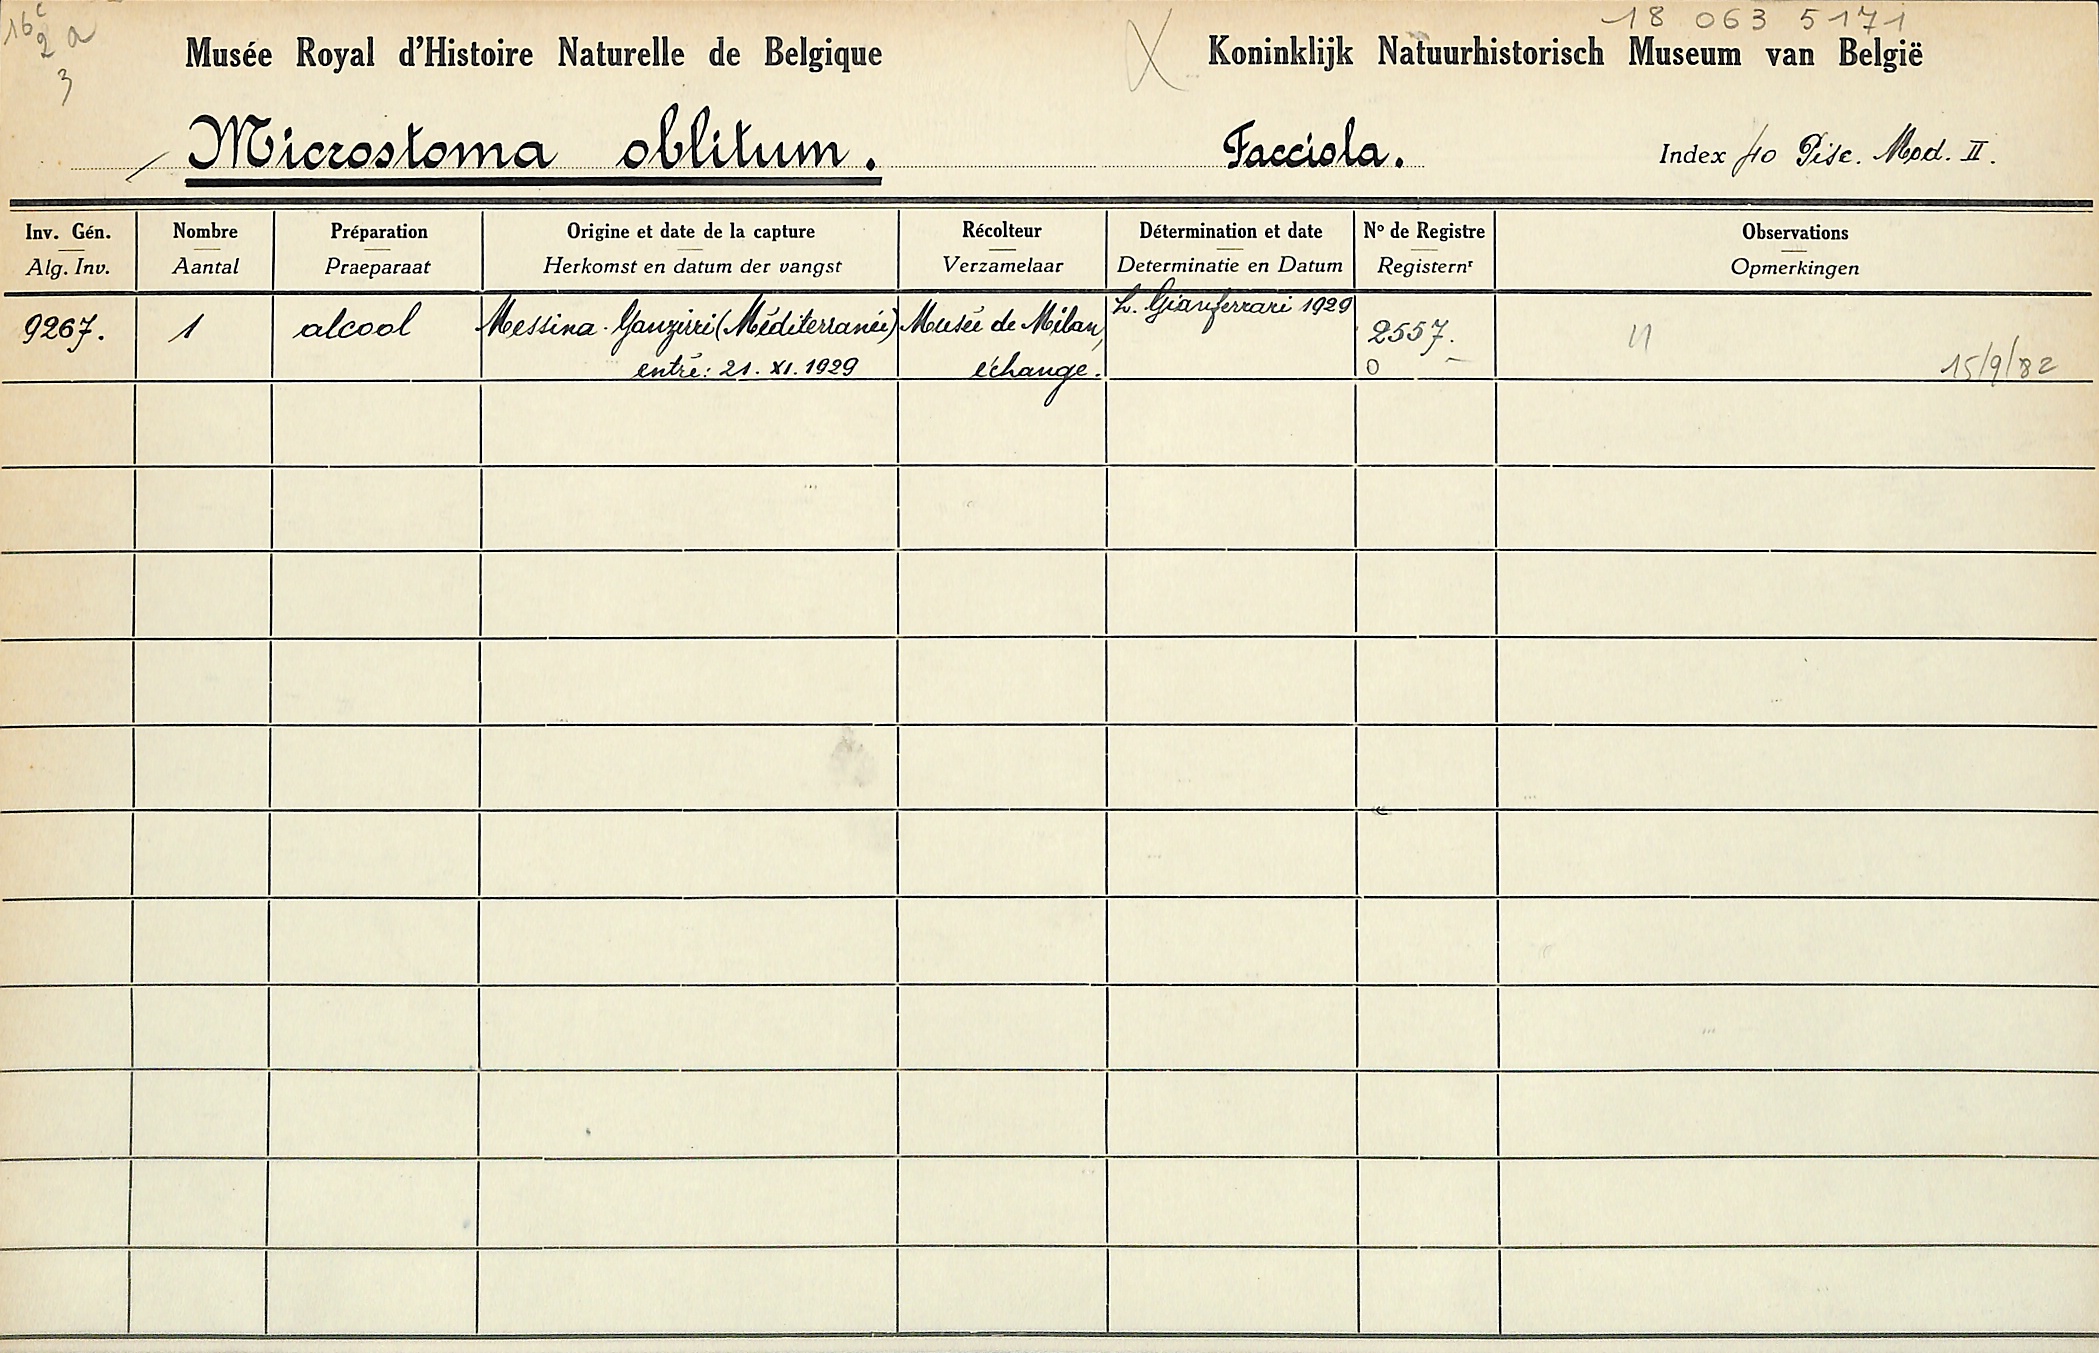 16c
2 a
3
18 063 5171
Musée Royal d'Histoire Naturelle de Belgique
X
Koninklijk Natuurhistorisch Museum van België
Microstoma oblitum.
Facciola.
Index 40 Pisc. Mod. II.
Inv. Gén.
Alg. Inv.
Nombre
Aantal
Préparation
Praeparaat
Origine et date de la capture
Herkomst en datum der vangst
Récolteur
Verzamelaar
Détermination et date
Determinatie en Datum
No de Registre
Registernr
Observations
Opmerkingen
9267.
1
alcool
Messina - Ganzirri (Méditerranée)
entré: 21. XI. 1929
Musée de Milan,
échange.
L. Gianferrari 1929
2557.
0
15/9/82